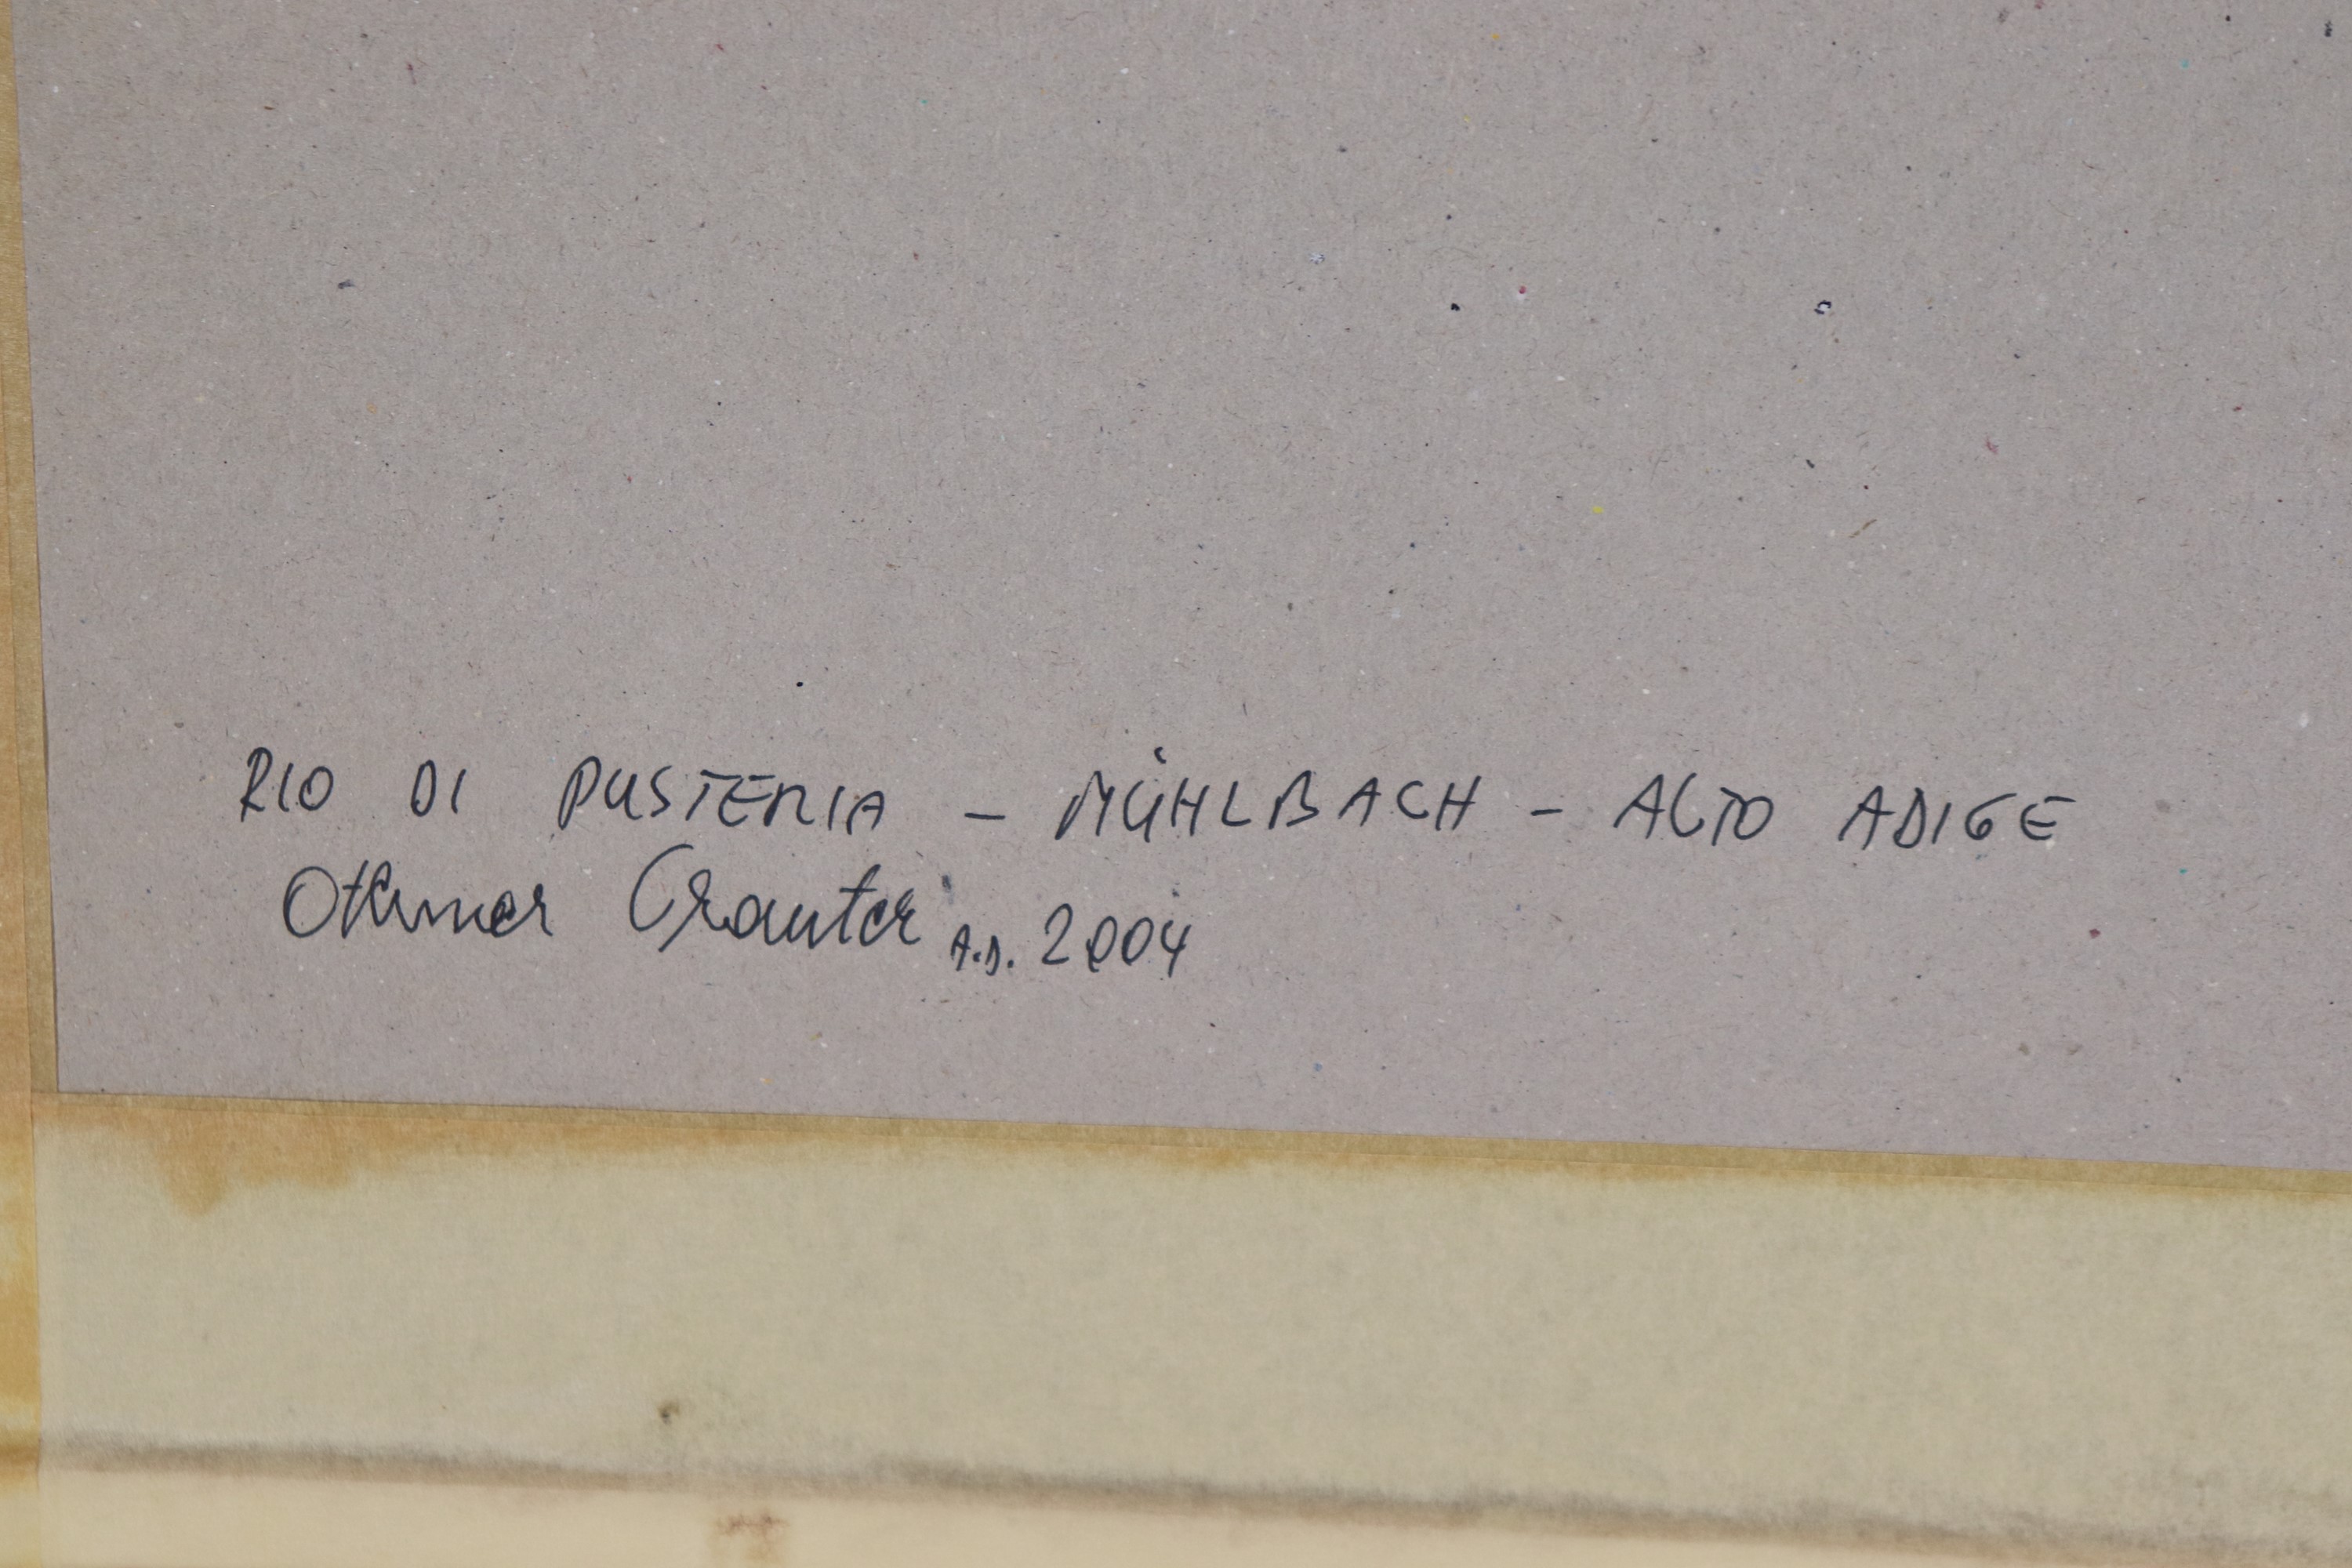 RIO DI PUSTERIA - MÜHLBACH - ALTO ADIGE
Othmar Crauter A.D. 2004